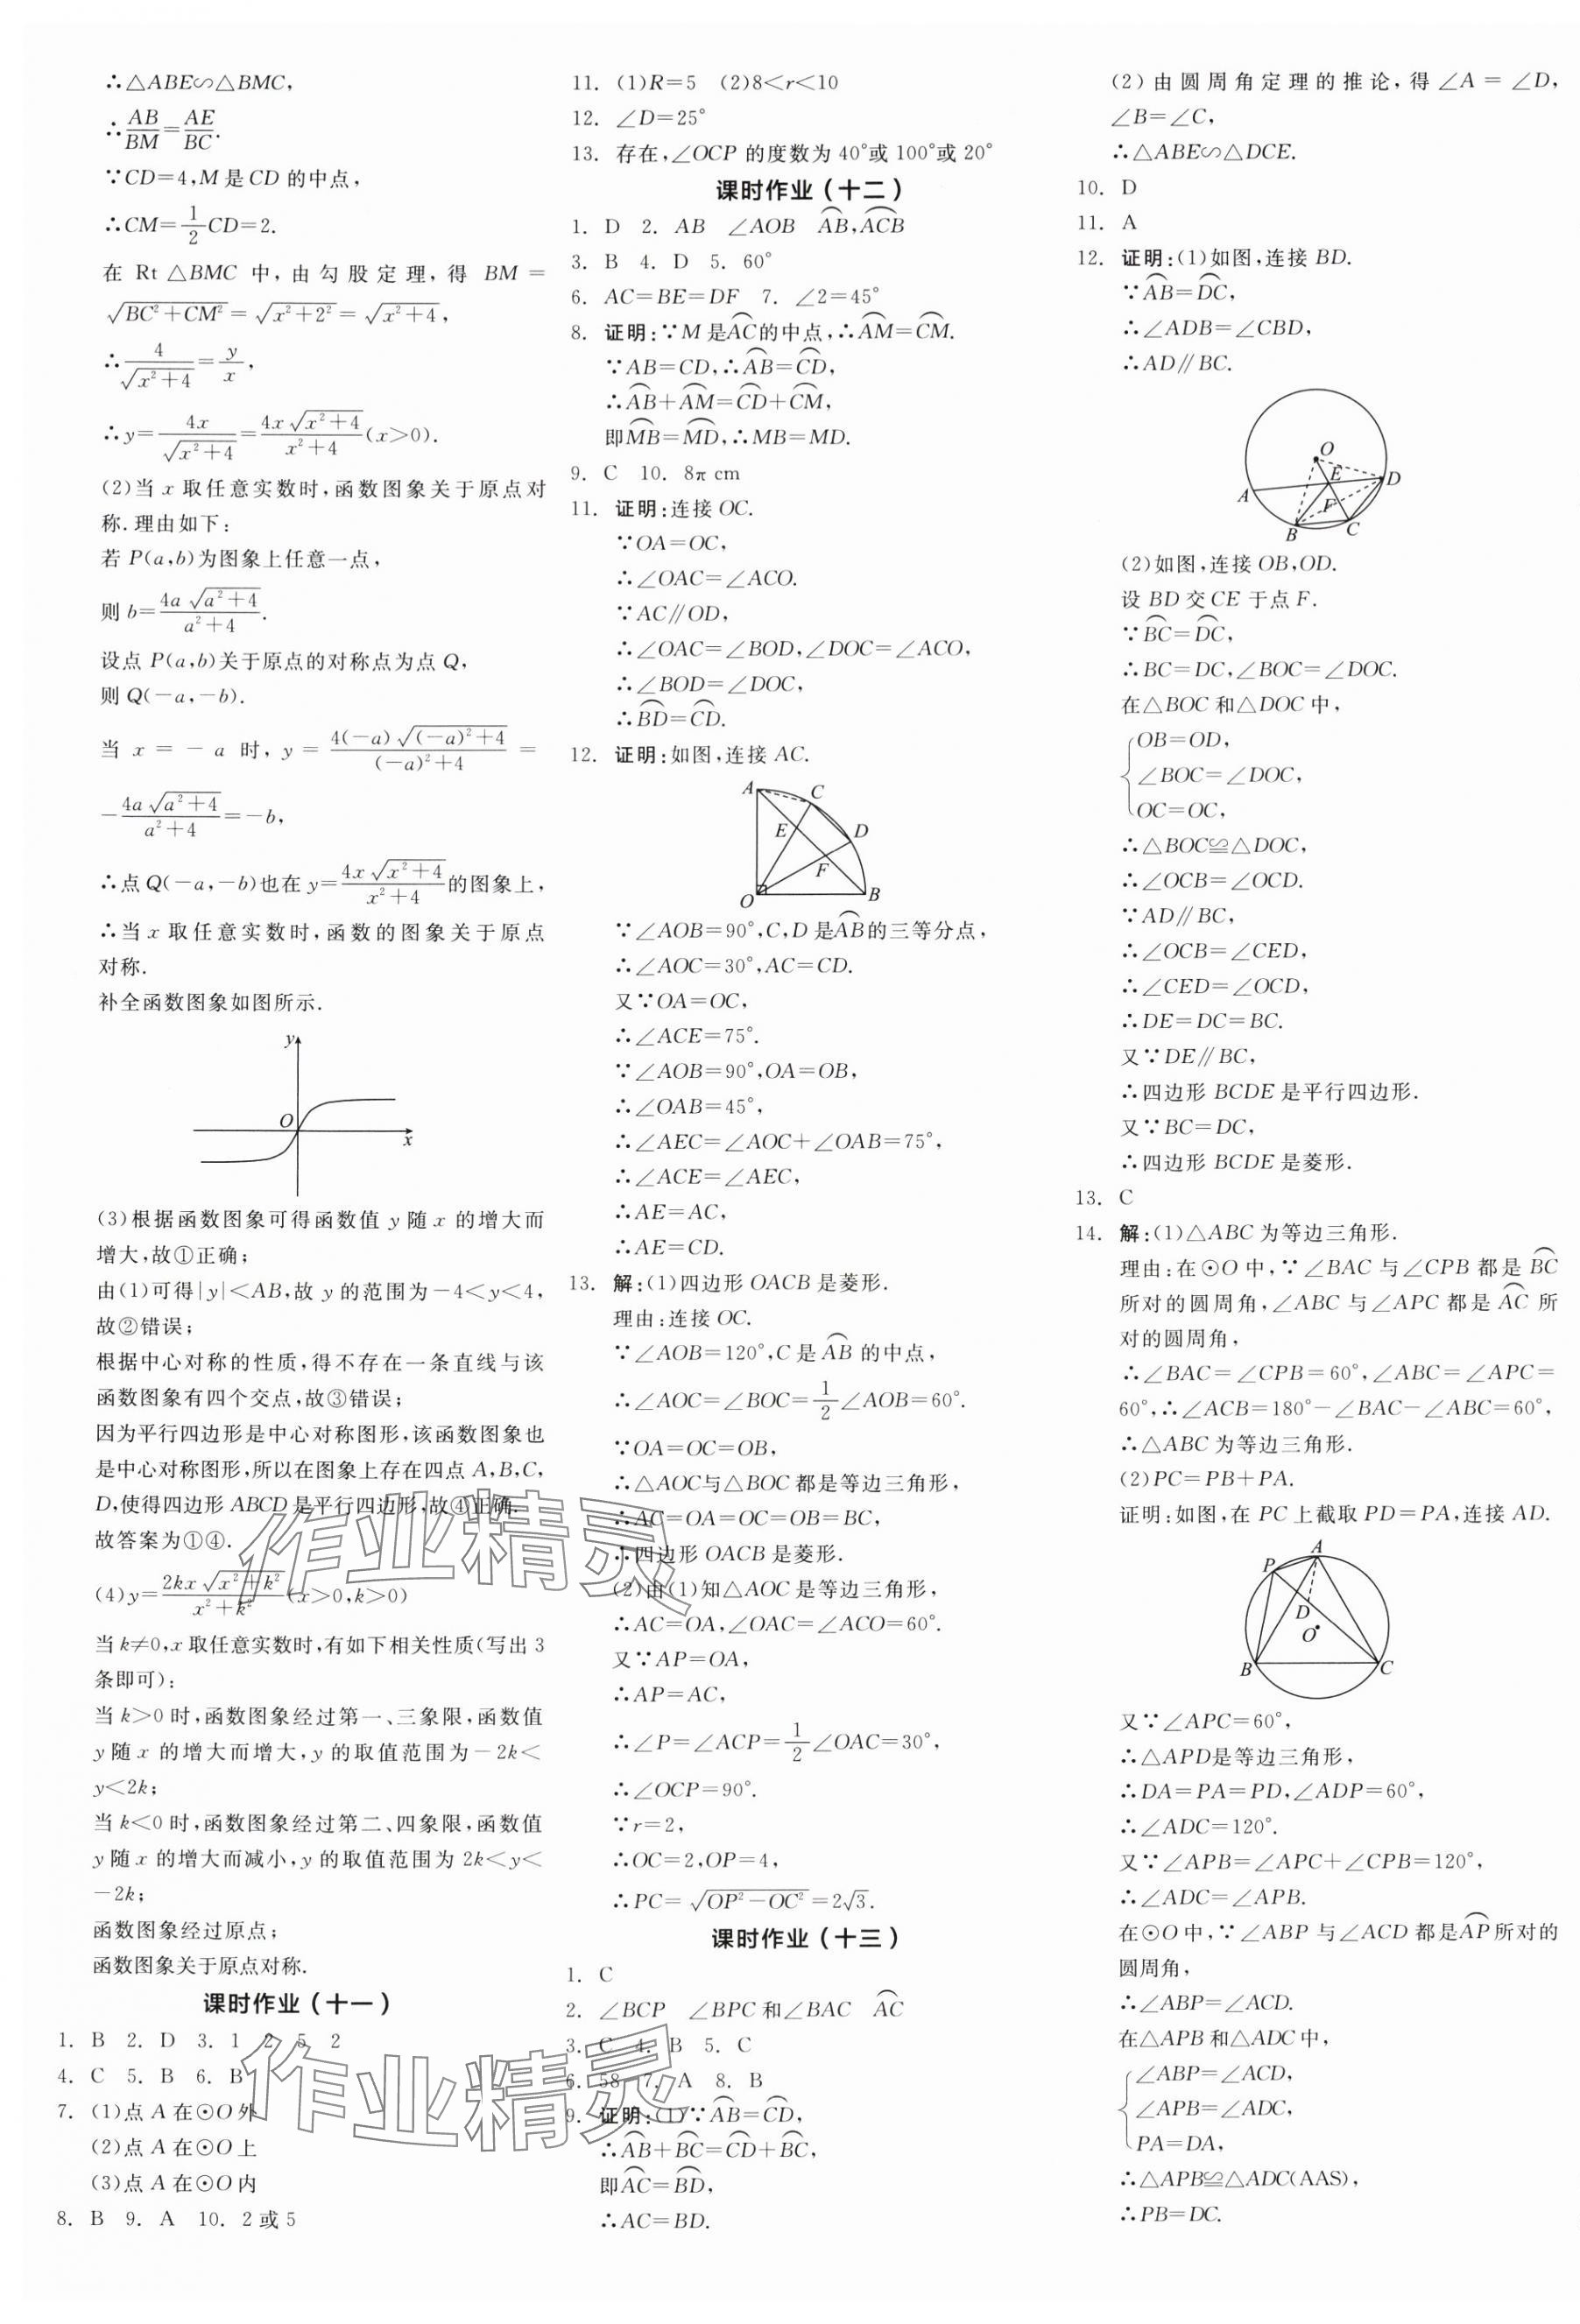 ∴△ABE∽△BMC,
∴AB/BM=AE/BC.
∵CD=4,M是CD的中点,
∴CM=1/2CD=2.
在 Rt△BMC 中,由勾股定理,得 BM=
√(BC²+CM²)=√(x²+2²)=√(x²+4),
∴4/√(x²+4)=y/x,
∴y=4x/√(x²+4)=4x√(x²+4)/(x²+4)(x>0).
(2)当x取任意实数时,函数图象关于原点对
称.理由如下:
若P(a,b)为图象上任意一点,
则b=4a√(a²+4)/(a²+4).
设点P(a,b)关于原点的对称点为点Q,
则Q(-a,-b).
当 x=-a 时,y=4(-a)√((-a)²+4)/((-a)²+4)=
-4a√(a²+4)/(a²+4)=-b,
∴点Q(-a,-b)也在y=4x√(x²+4)/(x²+4)的图象上,
∴当x取任意实数时,函数的图象关于原点
对称.
补全函数图象如图所示.
y
O
x
(3)根据函数图象可得函数值y随x的增大而
增大,故①正确;
由(1)可得|y|<AB,故y的范围为-4<y<4,
故②错误;
根据中心对称的性质,得不存在一条直线与该
函数图象有四个交点,故③错误;
因为平行四边形是中心对称图形,该函数图象也
是中心对称图形,所以在图象上存在四点A,B,C,
D,使得四边形ABCD是平行四边形,故④正确.
故答案为①④.
(4)y=2kx√(x²+k²)/(x²+k²)(x>0,k>0)
当k≠0,x取任意实数时,有如下相关性质(写出3
条即可):
当k>0时,函数图象经过第一、三象限,函数值
y随x的增大而增大,y的取值范围为-2k<
y<2k;
当k<0时,函数图象经过第二、四象限,函数值
y随x的增大而减小,y的取值范围为2k<y<
-2k;
函数图象经过原点;
函数图象关于原点对称.
课时作业(十一)
1. B 2. D 3. 1 2 5 2
4. C 5. B 6. B
7. (1)点A在⊙O外
(2)点A在⊙O上
(3)点A在⊙O内
8. B 9. A 10. 2或5
11. (1)R=5 (2)8<r<10
12. ∠D=25°
13. 存在,∠OCP的度数为40°或100°或20°
课时作业(十二)
1. D 2. AB ∠AOB ⌒AB,⌒ACB
3. B 4. D 5. 60°
6. AC=BE=DF 7. ∠2=45°
8. 证明:∵M是⌒AC的中点,∴⌒AM=⌒CM.
∵AB=CD,∴⌒AB=⌒CD,
∴⌒AB+⌒AM=⌒CD+⌒CM,
即⌒MB=⌒MD,∴MB=MD.
9. C 10. 8π cm
11. 证明:连接OC.
∵OA=OC,
∴∠OAC=∠ACO.
∵AC∥OD,
∴∠OAC=∠BOD,∠DOC=∠ACO,
∴∠BOD=∠DOC,
∴⌒BD=⌒CD.
12. 证明:如图,连接AC.
A C
E D
F
O B
∵∠AOB=90°,C,D是⌒AB的三等分点,
∴∠AOC=30°,AC=CD.
又∵OA=OC,
∴∠ACE=75°.
∵∠AOB=90°,OA=OB,
∴∠OAB=45°,
∴∠AEC=∠AOC+∠OAB=75°,
∴∠ACE=∠AEC,
∴AE=AC,
∴AE=CD.
13. 解:(1)四边形OACB是菱形.
理由:连接OC.
∵∠AOB=120°,C是⌒AB的中点,
∴∠AOC=∠BOC=1/2∠AOB=60°.
∵OA=OC=OB,
∴△AOC与△BOC都是等边三角形,
∴AC=OA=OC=OB=BC,
∴四边形OACB是菱形.
(2)由(1)知△AOC是等边三角形,
∴AC=OA,∠OAC=∠ACO=60°.
又∵AP=OA,
∴AP=AC,
∴∠P=∠ACP=1/2∠OAC=30°,
∴∠OCP=90°.
∵r=2,
∴OC=2,OP=4,
∴PC=√(OP²-OC²)=2√3.
课时作业(十三)
1. C
2. ∠BCP ∠BPC和∠BAC ⌒AC
3. C 4. B 5. C
6. 58 7. A 8. B
9. 证明:(1)∵⌒AB=⌒CD,
∴⌒AB+⌒BC=⌒CD+⌒BC,
即⌒AC=⌒BD,
∴AC=BD.
(2)由圆周角定理的推论,得∠A=∠D,
∠B=∠C,
∴△ABE∽△DCE.
10. D
11. A
12. 证明:(1)如图,连接BD.
∵⌒AB=⌒DC,
∴∠ADB=∠CBD,
∴AD∥BC.
O
E D
A
F
B C
(2)如图,连接OB,OD.
设BD交CE于点F.
∵⌒BC=⌒DC,
∴BC=DC,∠BOC=∠DOC.
在△BOC和△DOC中,
OB=OD,
∠BOC=∠DOC,
OC=OC,
∴△BOC≌△DOC,
∴∠OCB=∠OCD.
∵AD∥BC,
∴∠OCB=∠CED,
∴∠CED=∠OCD,
∴DE=DC=BC.
又∵DE∥BC,
∴四边形BCDE是平行四边形.
又∵BC=DC,
∴四边形BCDE是菱形.
13. C
14. 解:(1)△ABC为等边三角形.
理由:在⊙O中,∵∠BAC与∠CPB都是⌒BC
所对的圆周角,∠ABC与∠APC都是⌒AC所
对的圆周角,
∴∠BAC=∠CPB=60°,∠ABC=∠APC=
60°,∴∠ACB=180°-∠BAC-∠ABC=60°,
∴△ABC为等边三角形.
(2)PC=PB+PA.
证明:如图,在PC上截取PD=PA,连接AD.
A
P
D
O
B C
又∵∠APC=60°,
∴△APD是等边三角形,
∴DA=PA=PD,∠ADP=60°,
∴∠ADC=120°.
又∵∠APB=∠APC+∠CPB=120°,
∴∠ADC=∠APB.
在⊙O中,∵∠ABP与∠ACD都是⌒AP所对的
圆周角,
∴∠ABP=∠ACD.
在△APB和△ADC中,
∠ABP=∠ACD,
∠APB=∠ADC,
PA=DA,
∴△APB≌△ADC(AAS),
∴PB=DC.
作业精灵
作业精灵